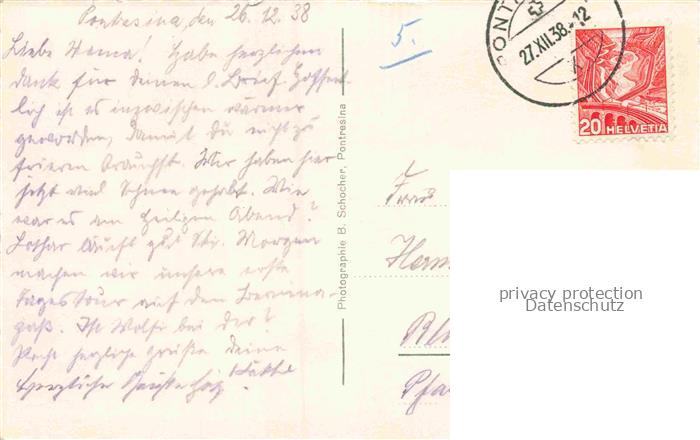 Pontresina, den 26.12.38
Liebe Herma! Habe herzlichen
Dank für deinen l. Brief. Hoffent-
lich ist es inzwischen wärmer
geworden, damit du nicht zu
frieren brauchst. Wir haben hier
jetzt viel Schnee gehabt. Wie
war es am Heiligen Abend?
Lothar läuft gut Ski. Morgen
machen wir unsere erste
Tagestour auf den Bernina-
paß. Ist Wolfi bei dir?
Recht herzliche Grüße deine
Herzliche
5.
PONT
27.XII.38.-12
20 HELVETIA
Photographie B. Schocher, Pontresina
Frau
Herm
Pfa
privacy protection
Datenschutz